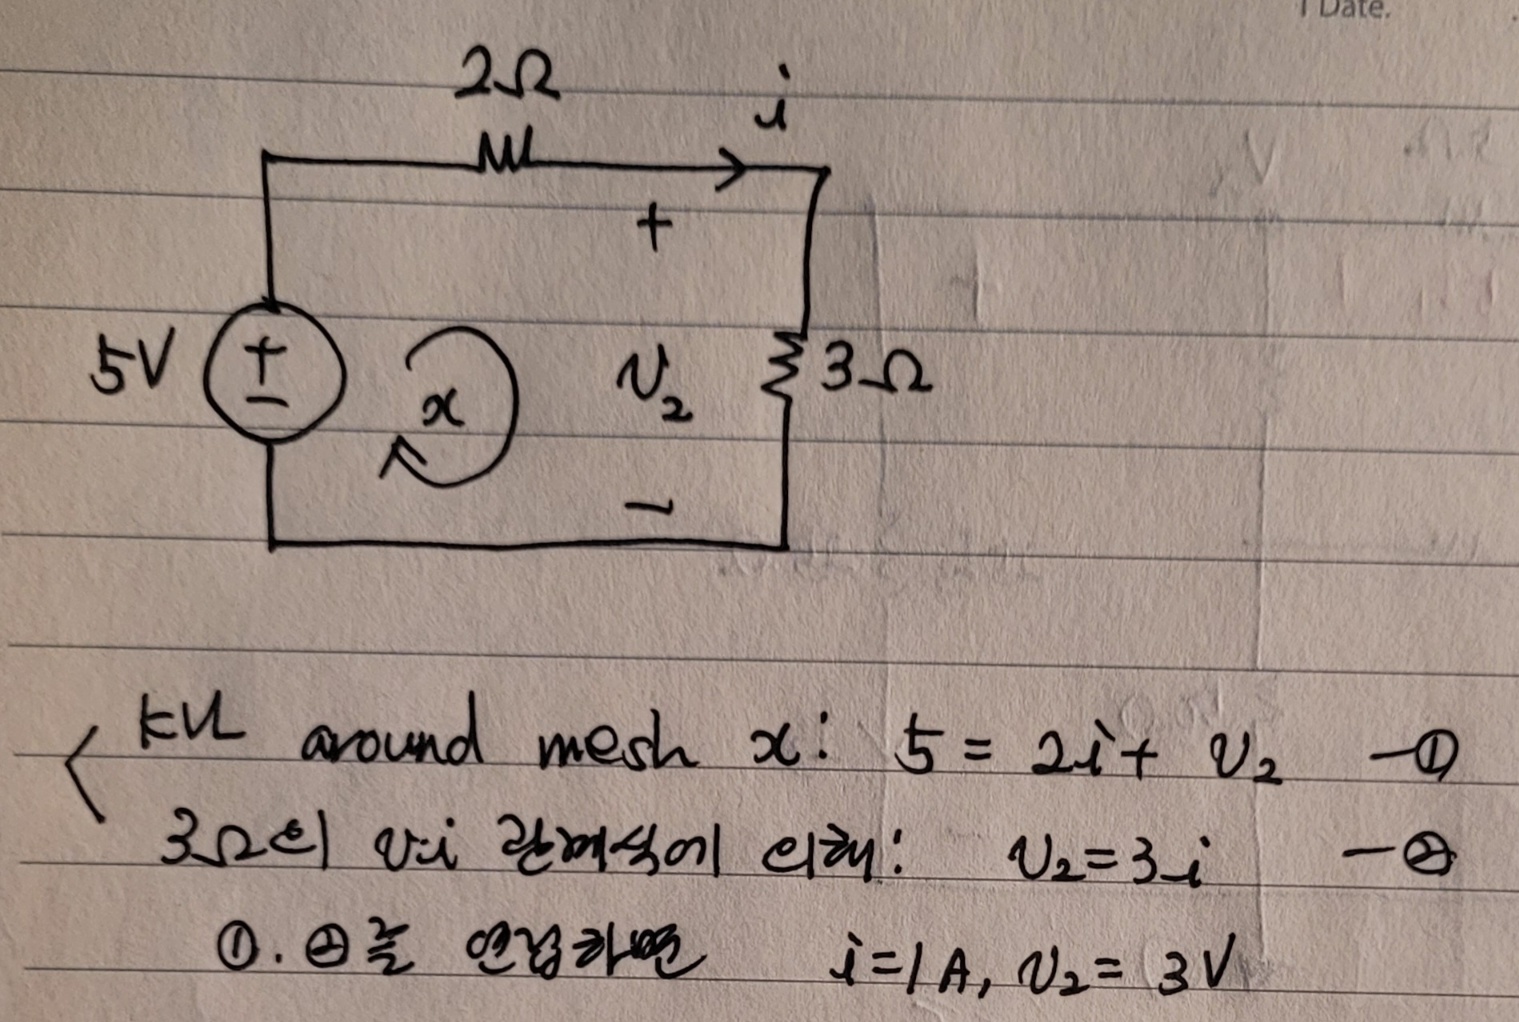 Date.
2Ω
i
+
5V
+
−
x
v₂
3Ω
−
KVL around mesh x: 5 = 2i + v₂ —①
3Ω의 v-i 관계식에 의해: v₂=3i —②
①.②를 연립하면 i=1A, v₂= 3V